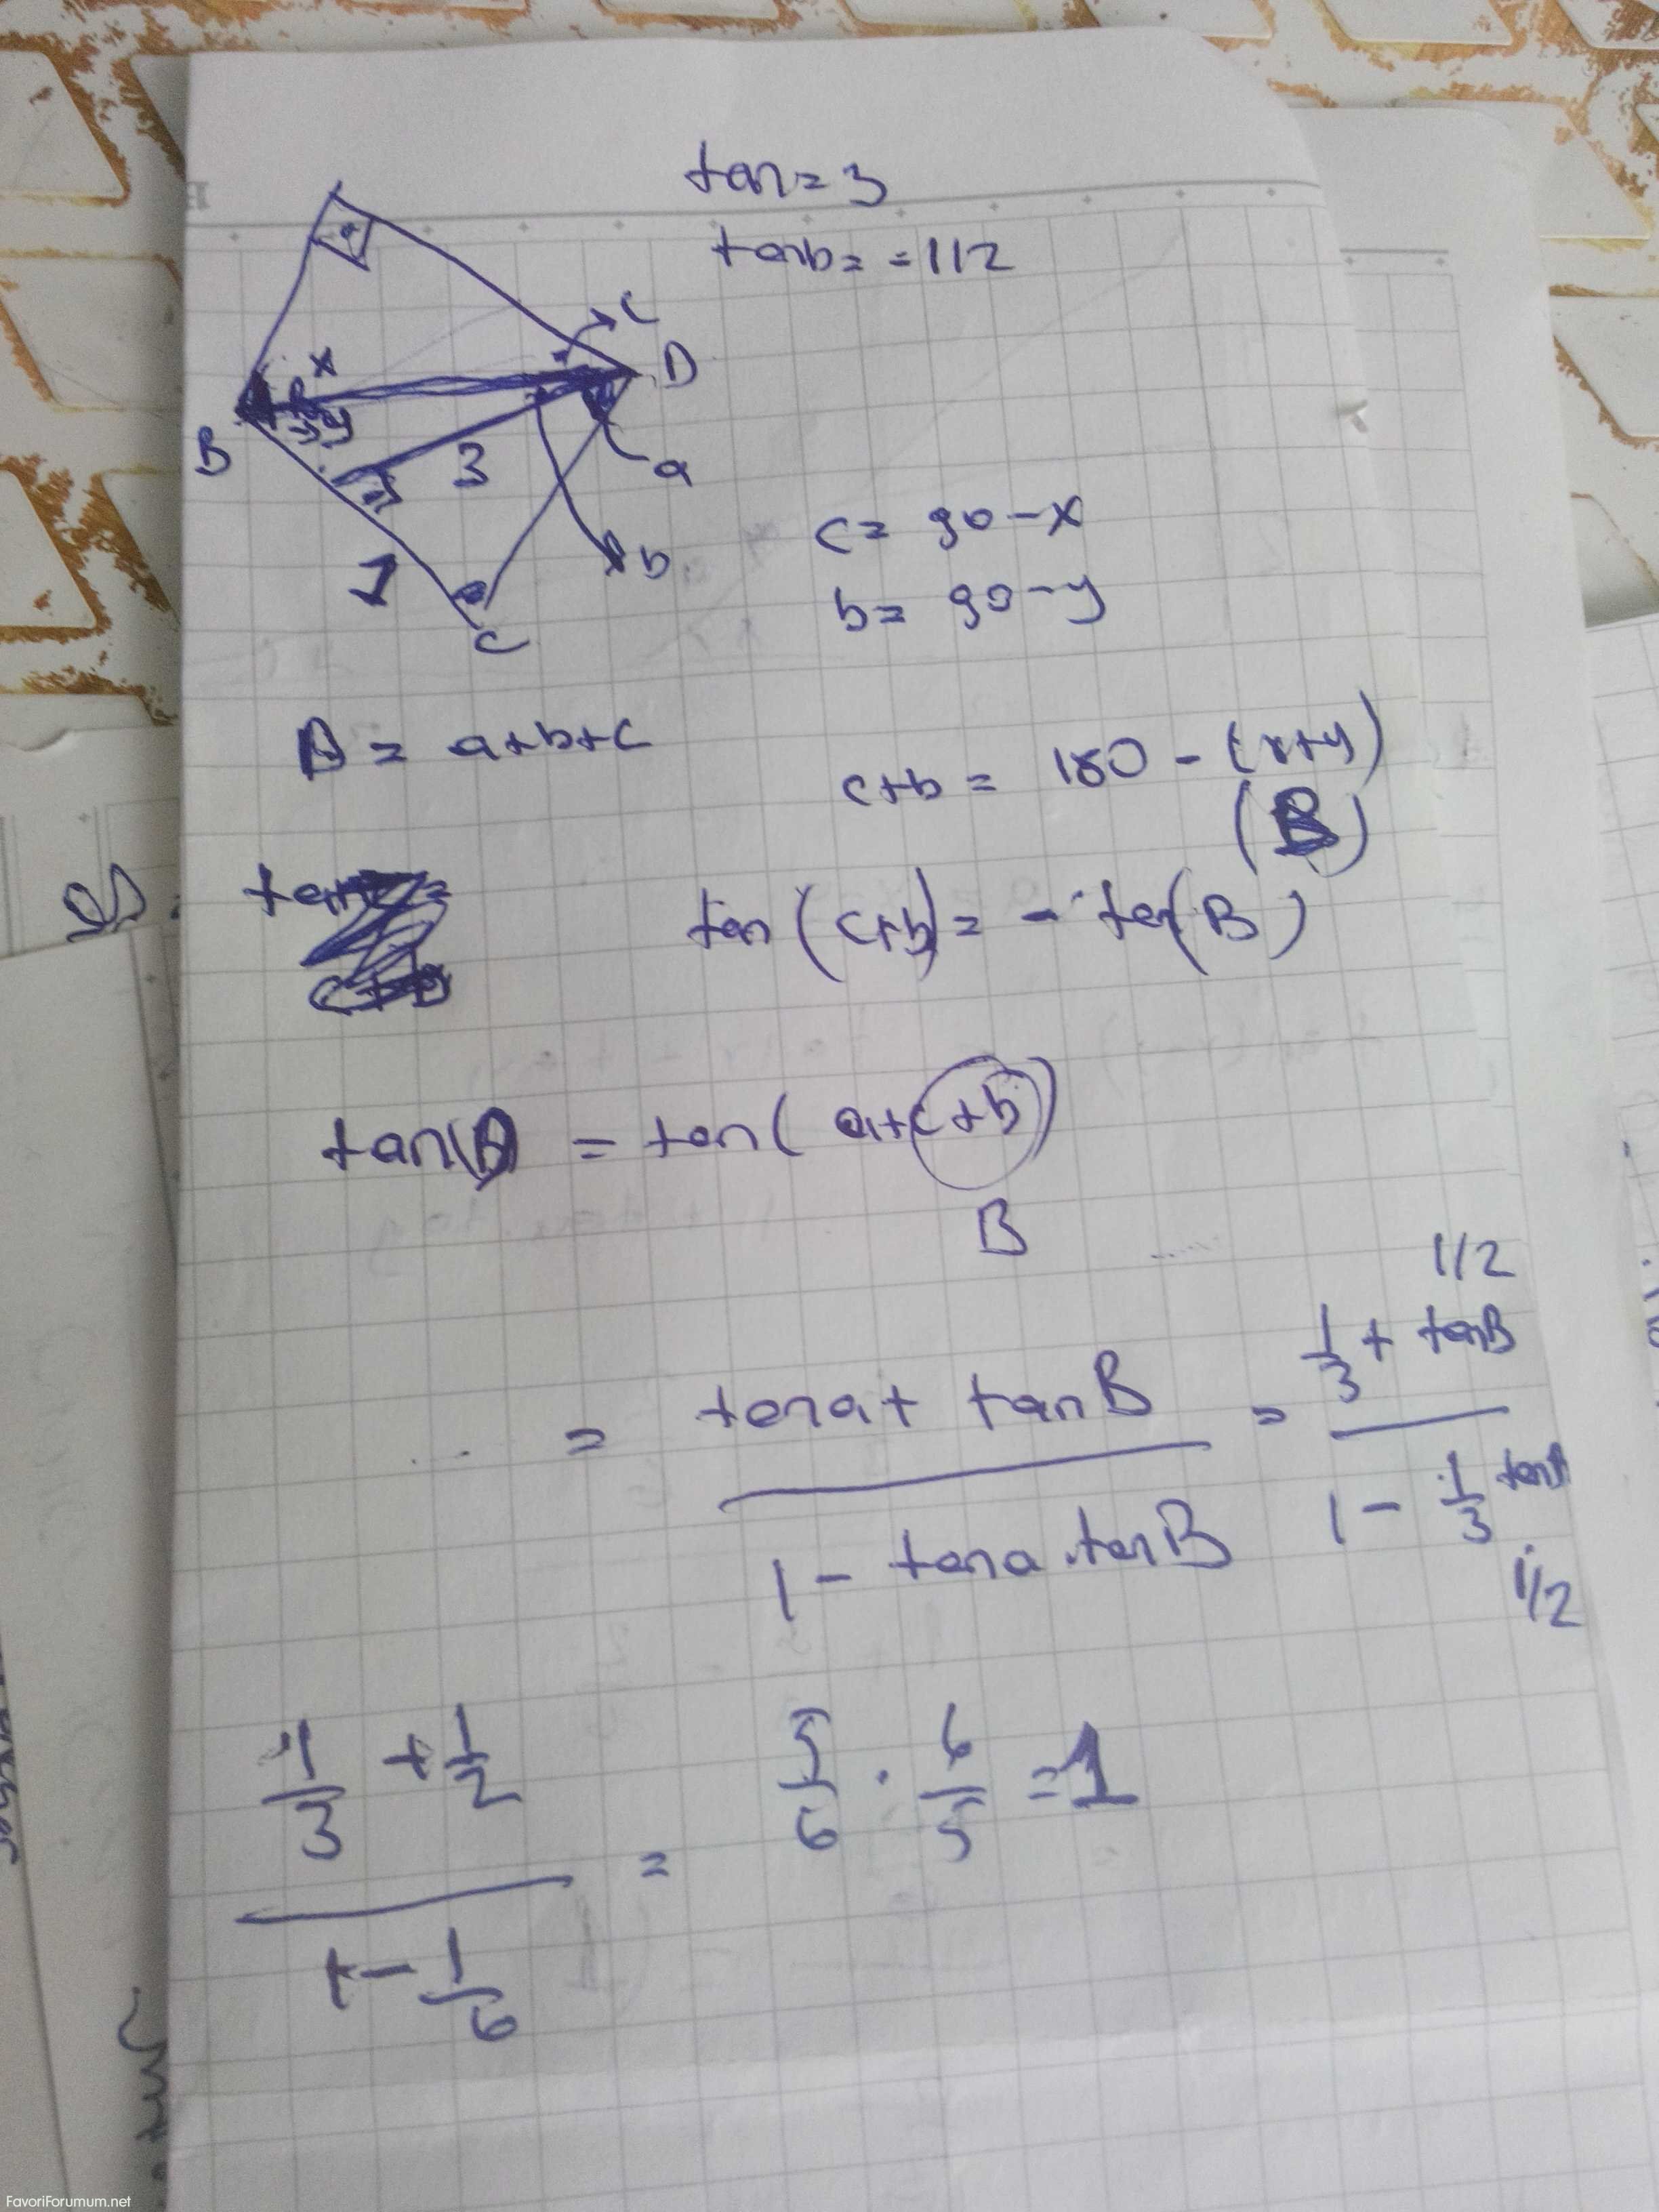 tan = 3
tanb = = 1/2
c
x
D
B
y
3
a
b
1
C
c = 90 - x
b = 90 - y
D = a+b+c
c+b = 180 - (x+y)
(B)
tan
c+b
tan (c+b) = - tan(B)
tan(D) = tan( a+c+b)
B
1/2
= tana + tanB / 1 - tana . tanB = 1/3 + tanB / 1 - 1/3 tanB
1/2
1/3 + 1/2 / 1 - 1/6 = 5/6 . 6/5 = 1
FavoriForumum.net